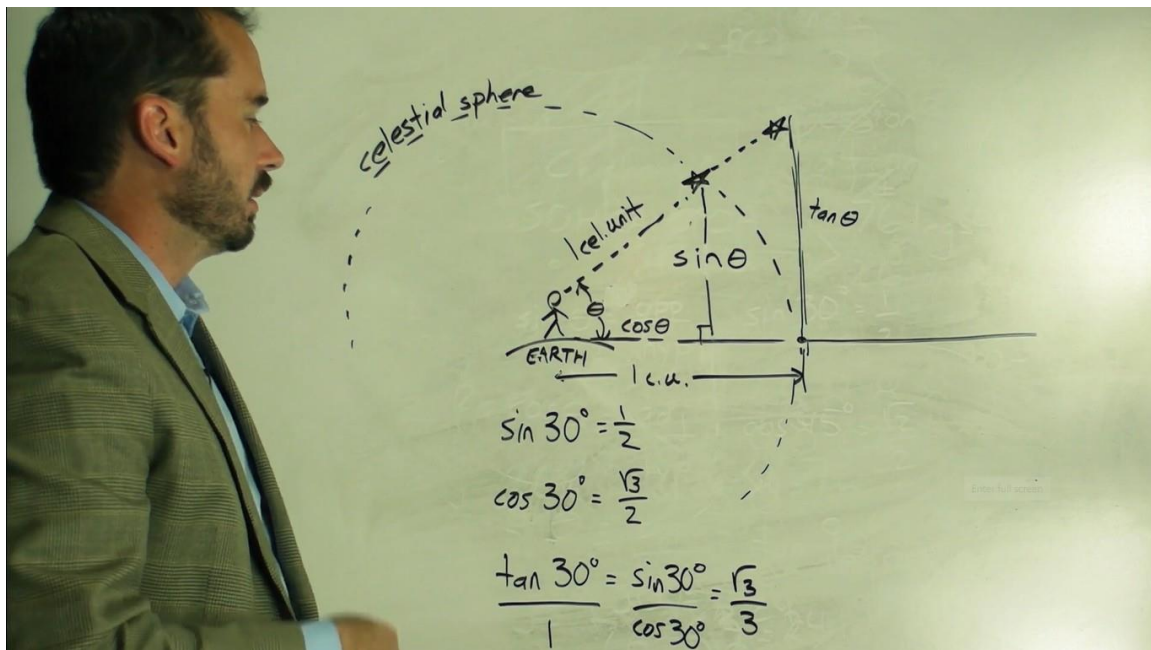 celestial sphere
1 cel. unit
tan θ
sin θ
θ
cos θ
EARTH
1 c.u.
sin 30° = 1/2
cos 30° = √3/2
tan 30°/1 = sin 30°/cos 30° = √3/3
Enter full screen